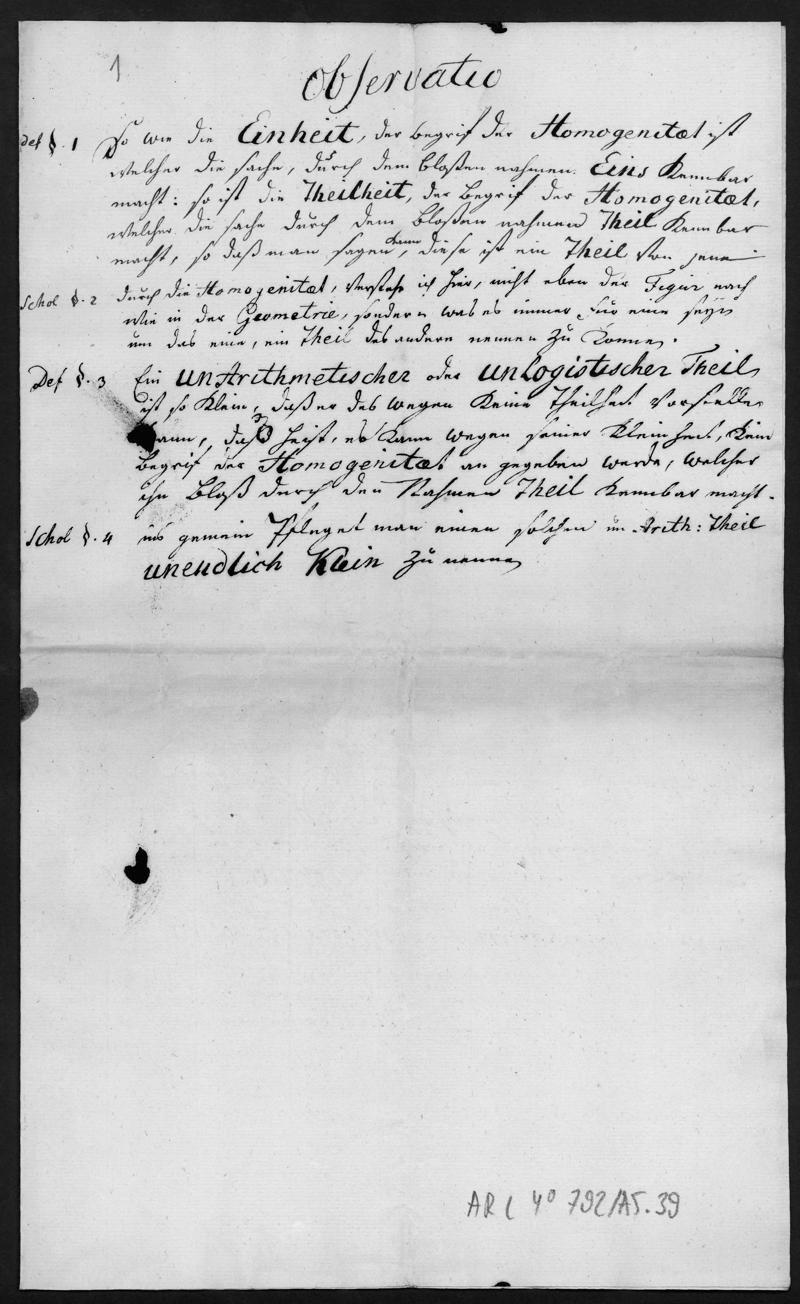 1
Observatio
Def §. 1 So wie die Einheit, der begrif der Homogenitæt ist
welcher die sache, durch dem bloßen nahmen Eins Kennbar
macht: so ist die Theilheit, der Begrif der Homogenitæt,
welcher die sache durch dem bloßen nahmen Theil Kennbar
macht, so daß man sagen kann, diese ist ein Theil von jene
Schol §. 2 durch die Homogenitæt, verstehe ich hier, nicht eben der Figur nach
wie in der Geometrie, sondern was es immer für eine seyn
um das eine, ein Theil des andern nennen zu Könne.
Def §. 3 Ein unArithmetischer oder unLogistischer Theil
ist so Klein, daß er des wegen Keine Theilheit vorstellen
Kann, das heist, es Kann wegen seiner Kleinheit, Kein
begrif der Homogenitæt an gegeben werde, welcher
ihn bloß durch den Nahmen Theil Kennbar macht.
Schol §. 4 ins gemein Pfleget man einen solchen un Arith: Theil
unendlich Klein zu nennen
AR C 4° 792/A5.39